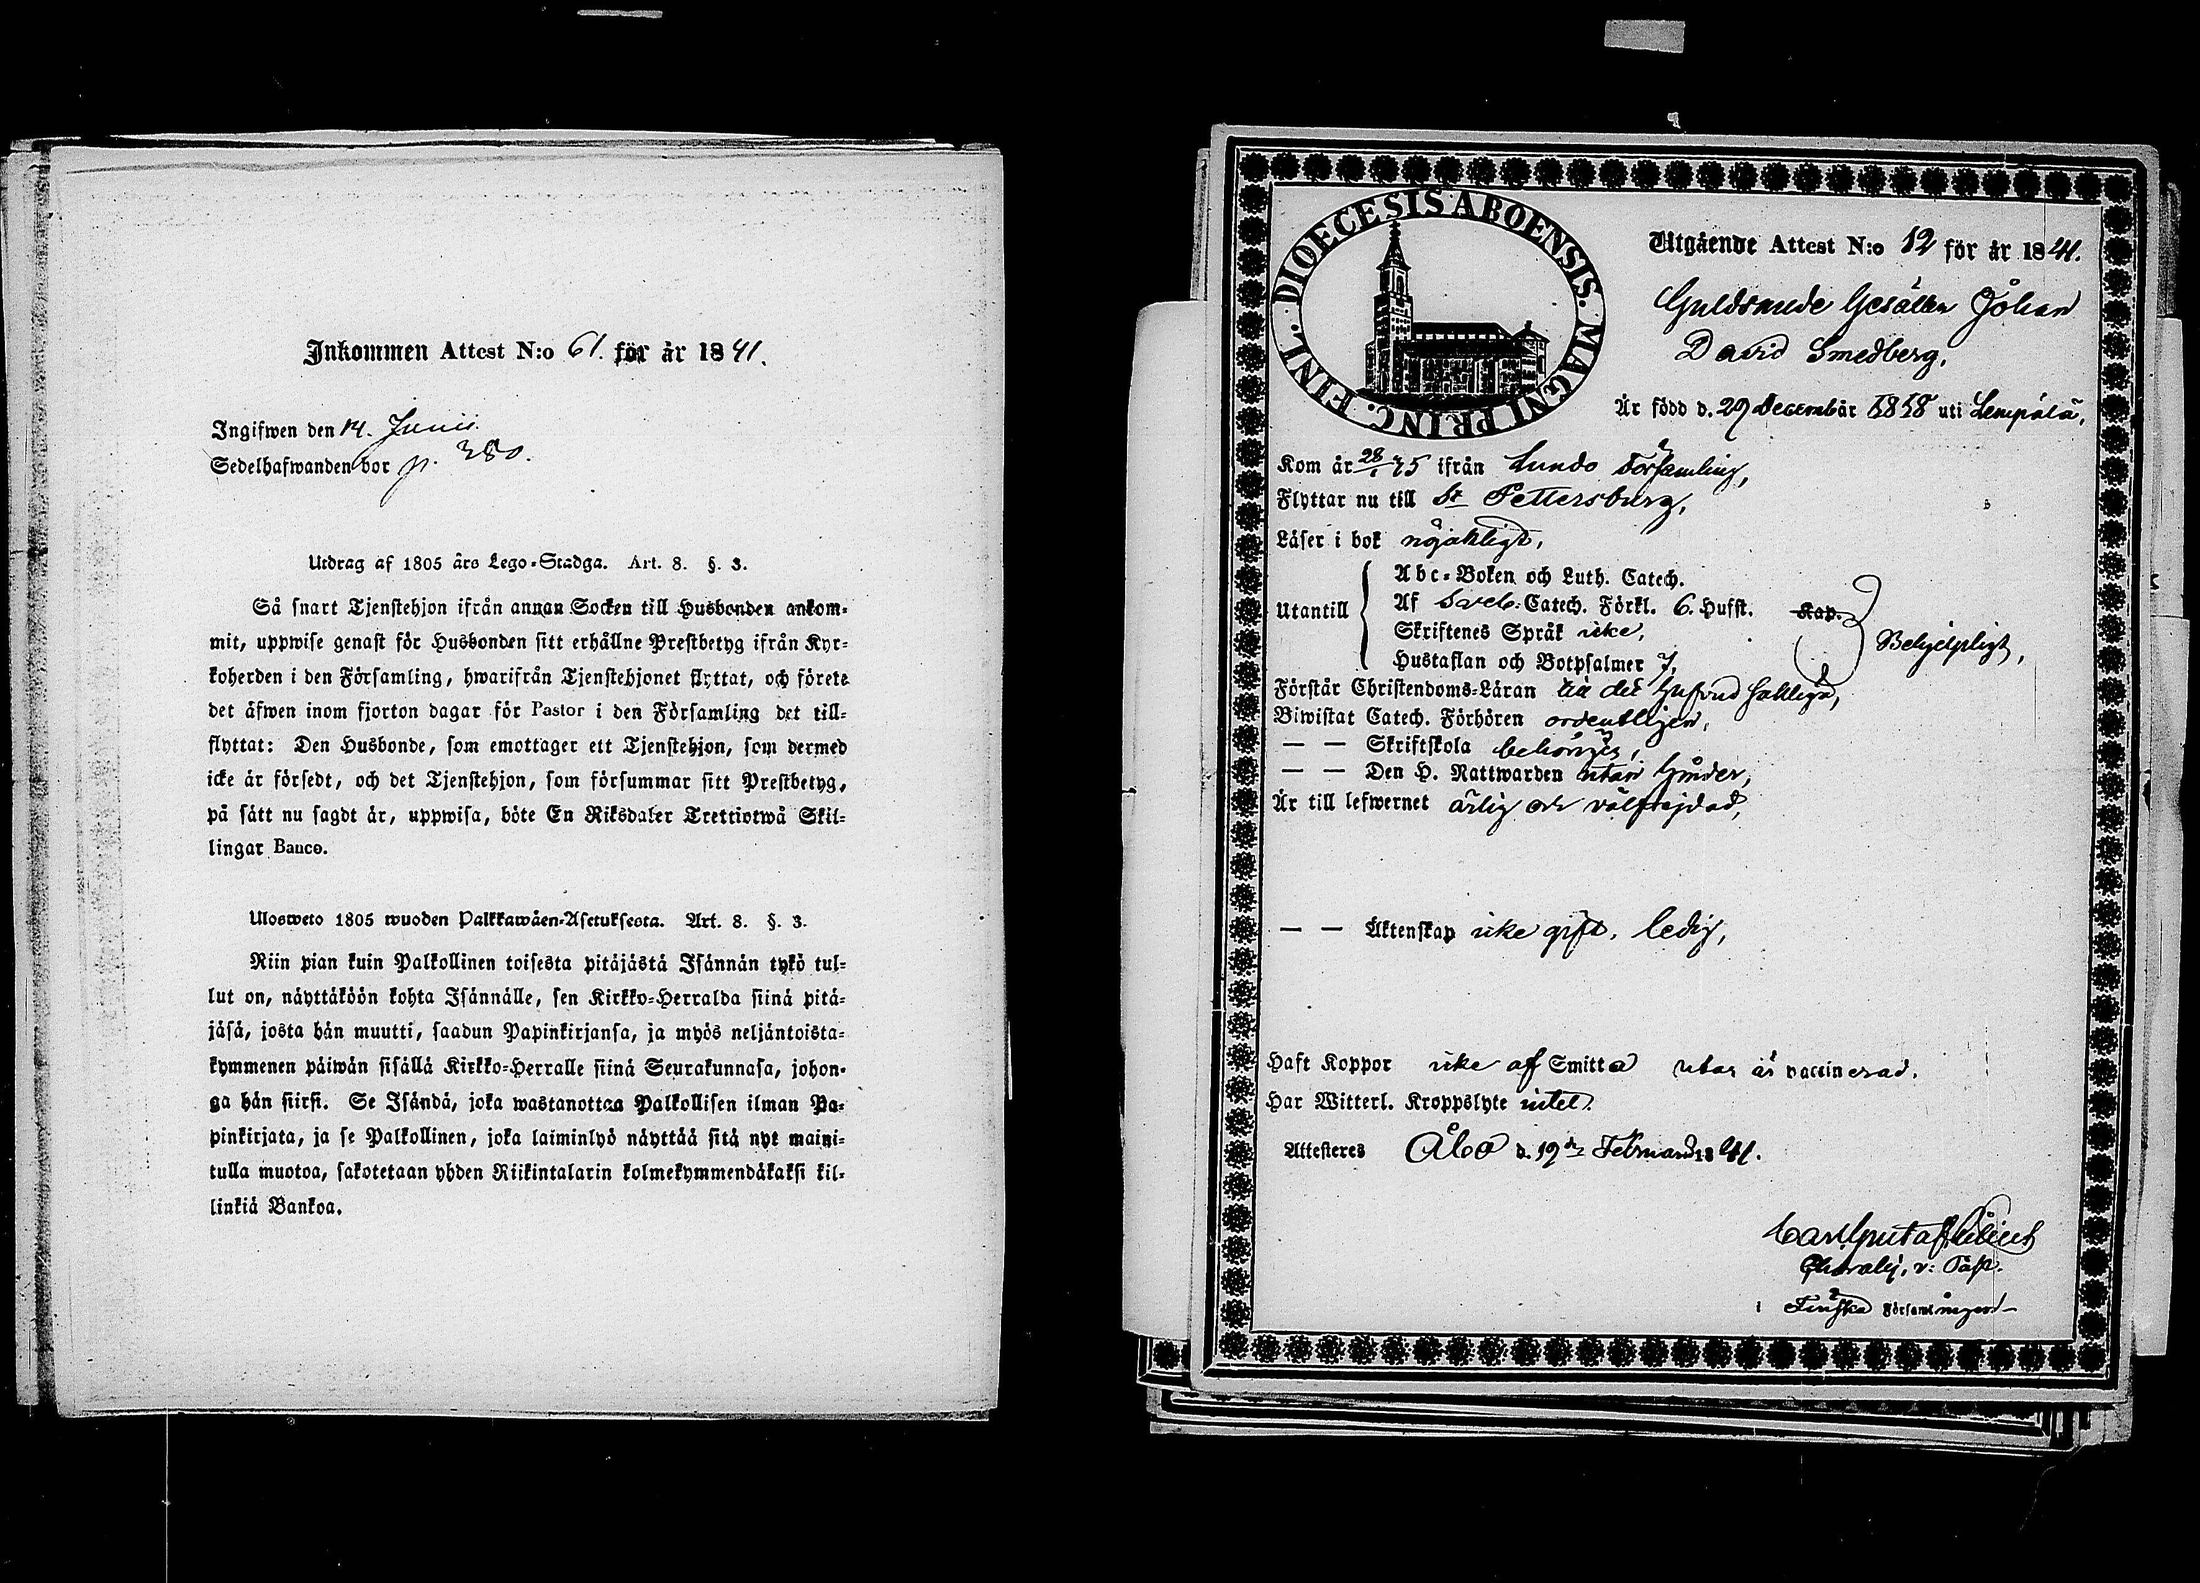 Inkommen Attest N:o 61. för år 1841.
Ingifwen den 14. Junii
Sedelhafwanden bor p. 380.
Utdrag af 1805 års Lego-Stadga. Art. 8. §. 3.
Så snart Tjenstehjon ifrån annan Socken till Husbonden ankom-
mit, uppwise genast för Husbonden sitt erhållne Prestbetyg ifrån Kyr-
koherden i den Församling, hwarifrån Tjenstehjonet flyttat, och förete
det äfwen inom fjorton dagar för Pastor i den Församling det till-
flyttat: Den Husbonde, som emottager ett Tjenstehjon, som dermed
icke är försedt, och det Tjenstehjon, som försummar sitt Prestbetyg,
på sätt nu sagdt är, uppwisa, böte En Riksdaler Trettiotwå Skil-
lingar Banco.
Ulosweto 1805 wuoden Palkkawäen-Asetuksesta. Art. 8. §. 3.
Niin pian kuin Palkollinen toisesta pitäjästä Isännän tykö tul-
lut on, näyttäköön kohta Isännälle, sen Kirkko-Herralda siinä pitä-
jäsä, josta hän muutti, saadun Papinkirjansa, ja myös neljäntoista-
kymmenen päiwän sisällä Kirkko-Herralle siinä Seurakunnasa, johon-
ga hän siirsi. Se Isändä, joka wastanottaa Palkollisen ilman Pa-
pinkirjata, ja se Palkollinen, joka laiminlyö näyttää sitä nyt maini-
tulla muotoa, sakotetaan yhden Riikintalarin kolmekymmendäkaksi kil-
linkiä Bankoa.
DIOECESIS ABOENSIS. MAGNI PRINC. FINL.
Utgående Attest N:o 12 för år 1841.
Guldsmeds Gesällen Johan
David Smedberg,
Är född d. 29 December 1818 uti Lempälä,
Kom år 28/1 35 ifrån Lundo Församling,
Flyttar nu till St Pettersburg,
Läser i bok nöjaktligt,
Utantill
Abc-Boken och Luth. Catech.
Af Sveb. Catech. Förkl. 6. Hufst. Kap.
Skriftenes Språk icke,
Hustaflan och Botpsalmer 7,
Behjelpligt,
Förstår Christendoms-Läran till det
Biwistat Catech. Förhören ordentligen,
— — Skriftskola behörigen,
— — Den H. Nattwarden utan hinder,
Är till lefwernet ärlig och välfrejdad,
— — Äktenskap icke gift, ledig,
Haft Koppor icke af Smitta utan är vaccinerad.
Har Witterl. Kroppslyte intet.
Attesteras Åbo d. 19de Februarii 1841.
Carl Gustaf
v: Past.
i Finska Församlingen